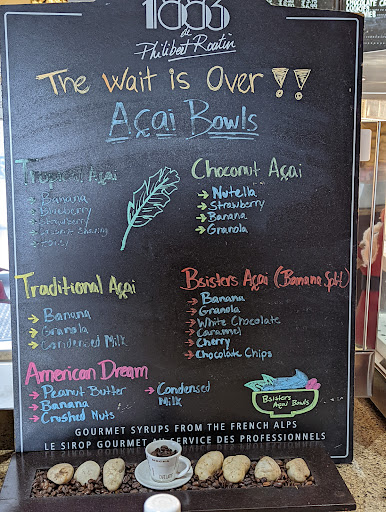 1883
de
Philibert Routin
The Wait is Over!!
Açai Bowls
Tropical Açai
→ Banana
→ Blueberry
→ Strawberry
→ Coconut Shaving
→ Honey
Choconut Açai
→ Nutella
→ Strawberry
→ Banana
→ Granola
Traditional Açai
→ Banana
→ Granola
→ Condensed Milk
Bsisters Açai (Banana Split)
→ Banana
→ Granola
→ White Chocolate
→ Caramel
→ Cherry
→ Chocolate Chips
American Dream
→ Peanut Butter
→ Banana
→ Crushed Nuts
→ Condensed
Milk
Bsisters
Açai Bowls
GOURMET SYRUPS FROM THE FRENCH ALPS
LE SIROP GOURMET AU SERVICE DES PROFESSIONNELS